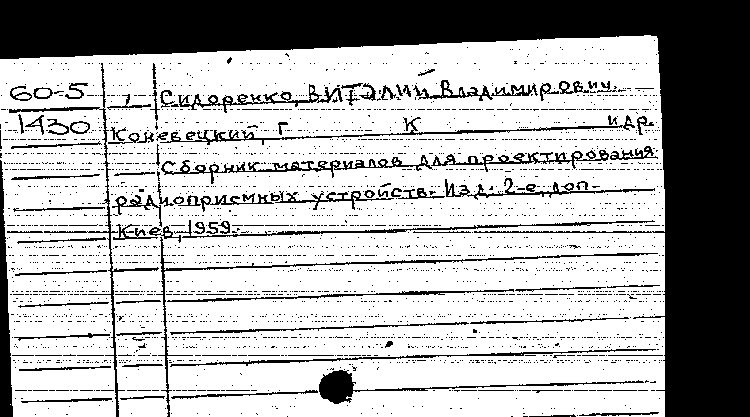 60-5 1 Сидоренко, ВИТАЛИЙ Владимирович.
1430 Коневецкий, Г К и др.
Сборник материалов для проектирования
радиоприемных устройств. Изд. 2-е, доп.
Киев, 1959.